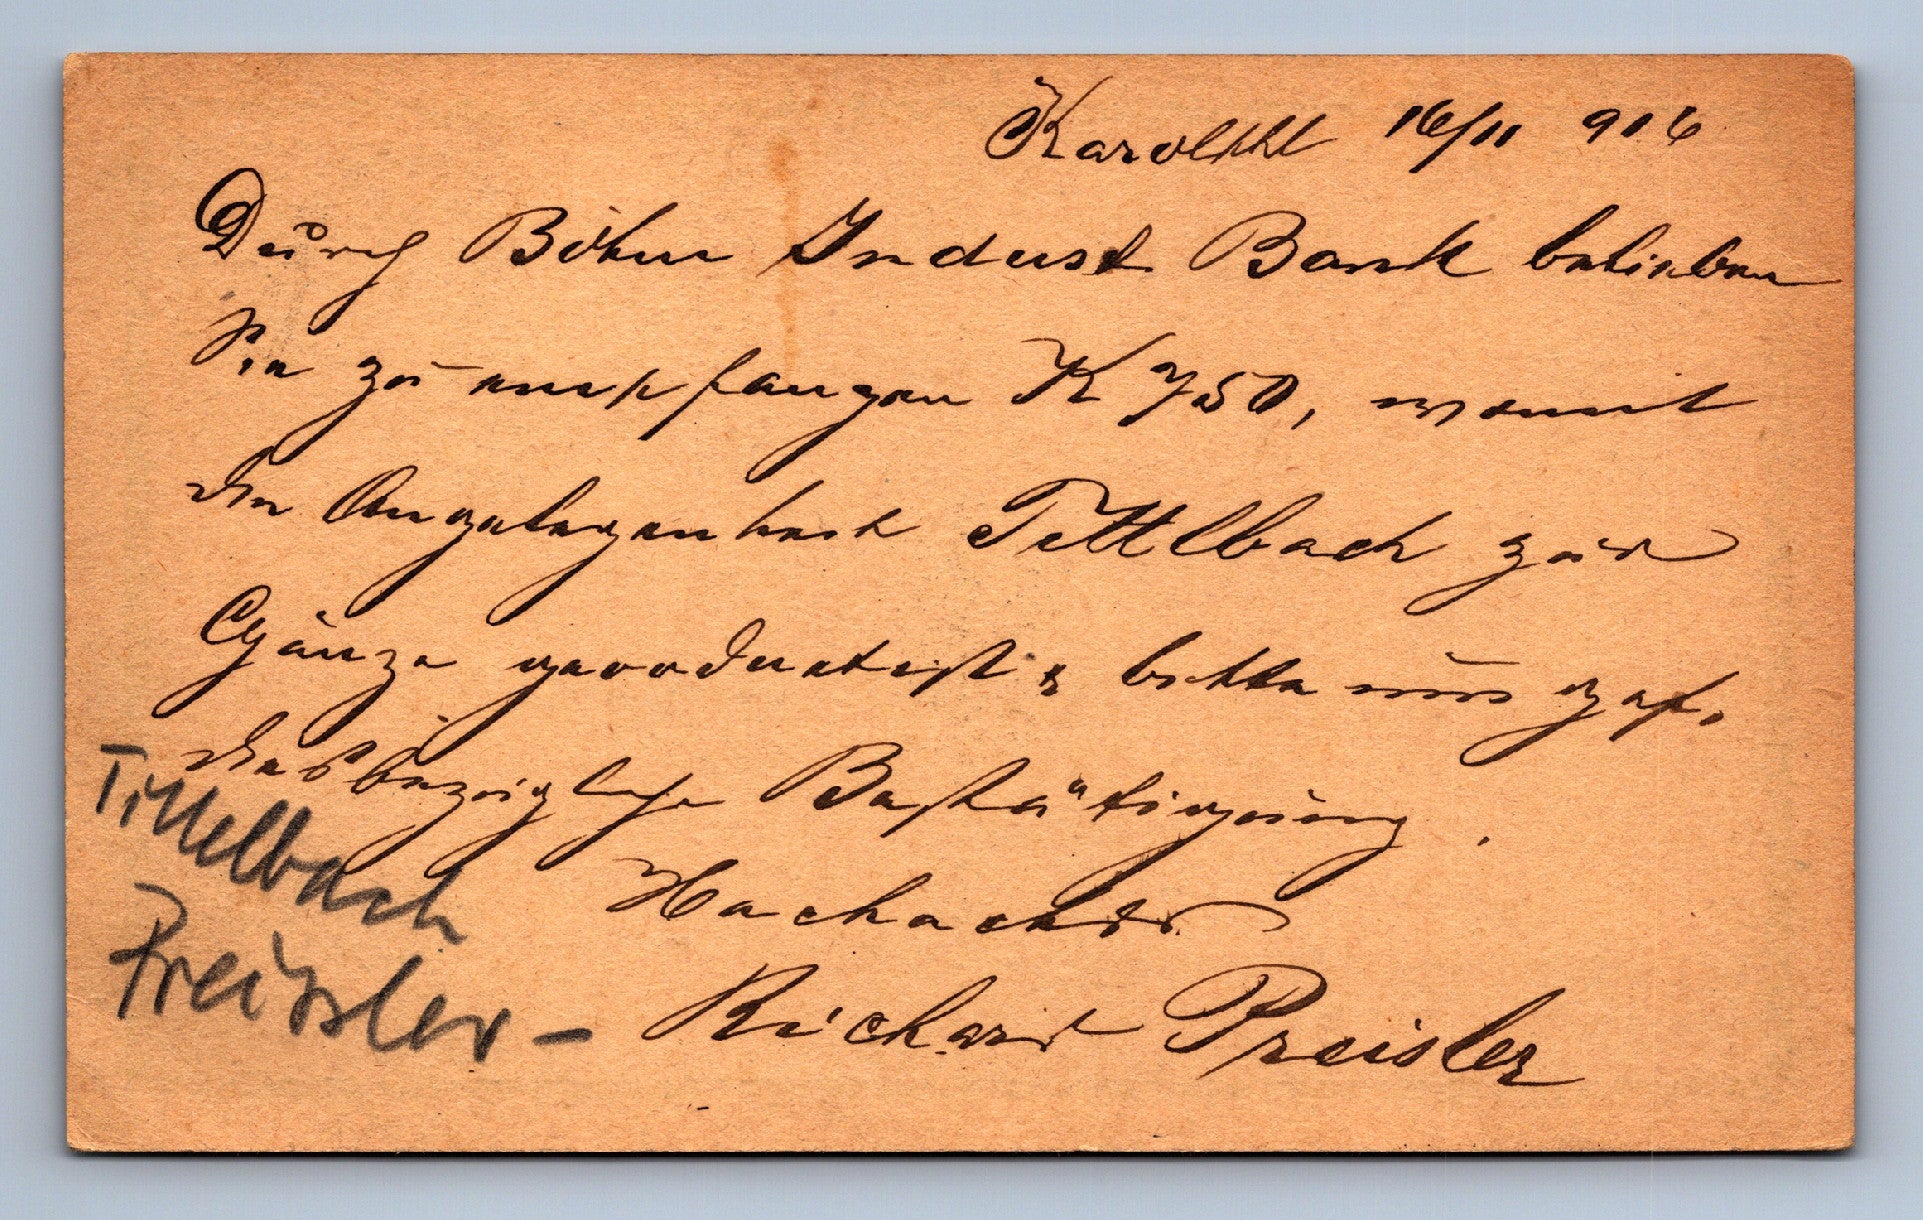 Karolthl 16/11 916
Durch Böhm Indust Bank belieben
Sie zu empfangen K 750, womit
die Angelegenheit Tittlbach zur
Gänze geordnet ist & bitte um gef.
diesbezügliche Bestätigung.
Hochacht
Richard Preisler
Tittelbach
Preissler –